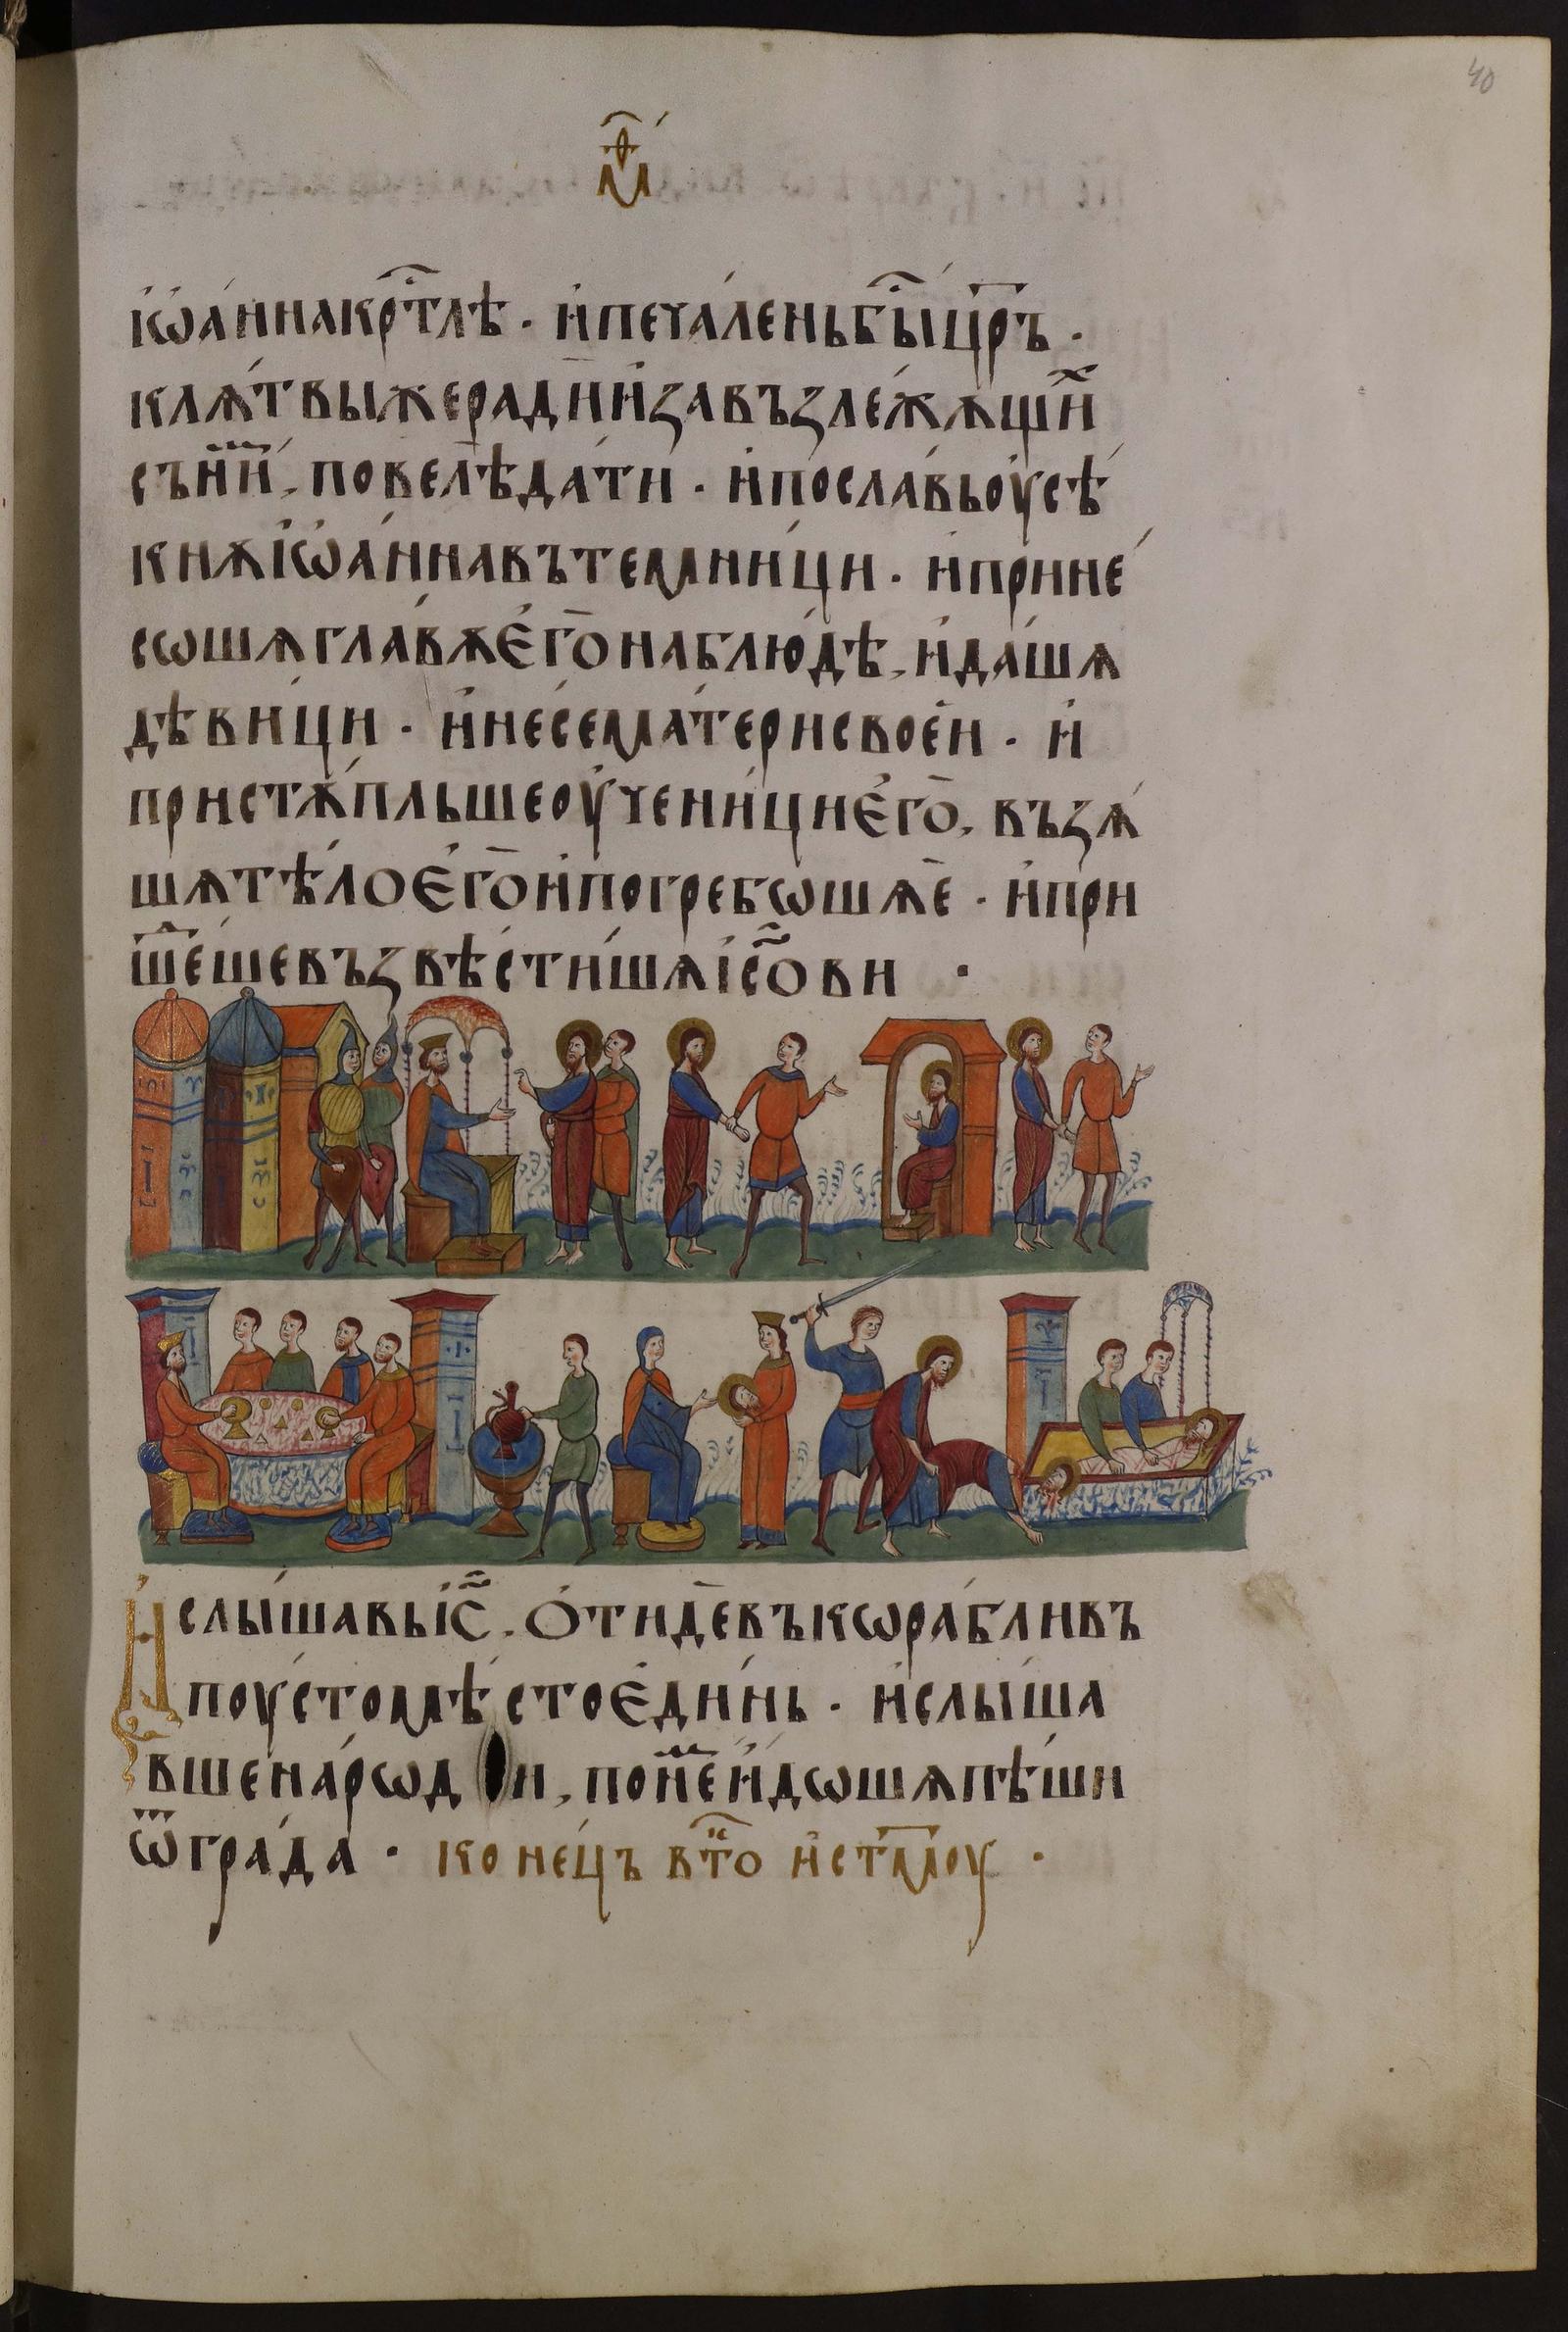 40
м҃ѳ
і҆ѡа́ннакр҇тлѣ · и҆печа́леньбы҇цр҃ъ ·
клѧ́твыжеради҆и҆завъзлежѧщиⷯ
съниⷨи҆, повелѣда́ти · и҆посла́вьоусѣ́
кнѫі҆ѡа́ннавътемни́ци · и҆прине́
сѡшѧгла́вѫего҃наблю́дѣ, и҆да́шѧ
дѣви́ци · и҆несема́терисвое́и · и҆
пристѫ́пльшеоу҆чени́цие҆го҃, възѧ́
шѧтѣ́лоего҃и҆погребѡшѧе · и҆при
шеⷣшевъзвѣсти́шѧі҆с҃ови ·
И҆слы́шавьі҆с҃, ѻ҆тидевъкѡра́бливъ
поу́стомѣ́стоеди́нь · и҆слы́ша
вшена́рѡди, понеⷨи҆дѡшѧпѣ́ши
ѿгра́да · коне́цъ вто҇ и҆стмоу ·